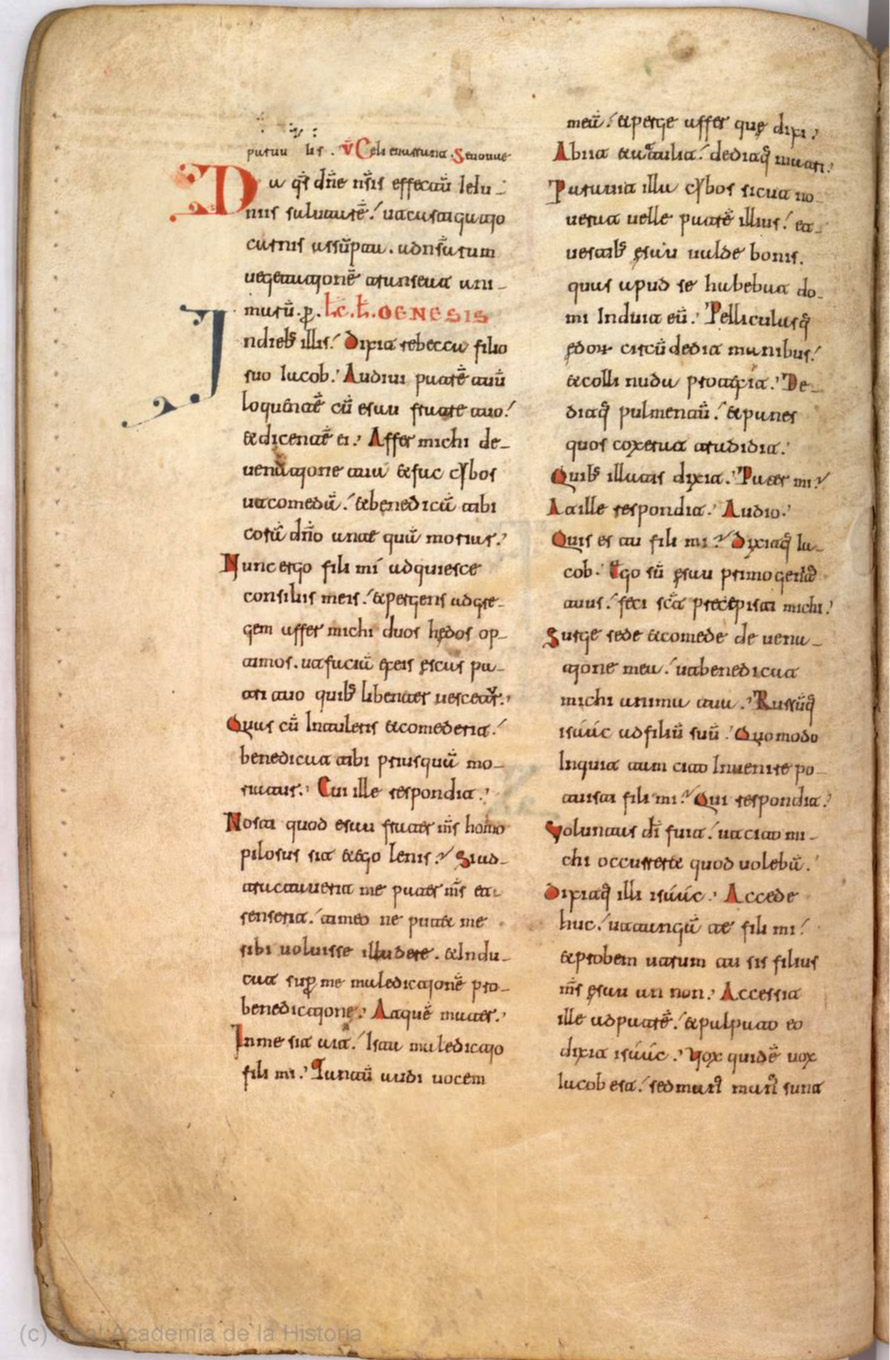 V̄ Celi enarrant. Secunde
Da q̄s dn̄e nr̄is effectū Ieiu-
niis salutarē. ut castigatio
carnis assūpta. ad nr̄arum
vegetationē transeat ani-
marū. p̄. Lc̄. L. GENESIS
In dieb; illis. Dixit rebecca filio
suo Iacob. Audiui patrē tuū
loquentē cū esau fratre tuo.
et dicentē ei. Affer michi de
uenatione tua et fac cybos
ut comedā. et benedicā tibi
corā dn̄o ante quā moriar.
Nunc ergo fili mi adquiesce
consiliis meis. et pergens ad gre-
gem affer michi duos hędos op-
timos. ut faciā ex eis escas pa-
tri tuo quib; libenter uescat̄.
Quas cū Intuleris et comederit.
benedicat tibi priusquā mo-
riatur. Cui ille respondit.
Nosti quod esau frater m̄s homo
pilosus sit et ego lenis. Si ad-
trectauerit me pater m̄s et
senserit. timeo ne putet me
sibi uoluisse illudere. et Indu-
cat sup̄ me maledictionē pro
benedictione. At quē mater.
In me sit ait. Ista maledictio
fili mi. Tantū audi uocem
meā. et perge affer quę dixi.
Abiit et attulit. deditq; matri.
Parauit illa cybos sicut no-
uerat uelle patrē illius. et
uestib; esau ualde bonis.
quas apud se habebat do-
mi Induit eū. Pelliculasq;
ędorū circūdedit manibus.
et colli nuda protexit. De-
ditq; pulmentū. et panes
quos coxerat tradidit.
Quib; illatis dixit. Pater mi.
At ille respondit. Audio.
Quis es tu fili mi? Dixitq; Ia-
cob. Ego sū esau primogenit;
tuus. feci sic̄ precepisti michi.
Surge sede et comede de uena-
tione mea. ut benedicat
michi anima tua. Rursūq;
isaac ad filiū suū. Quomodo
Inquit tam cito Inuenire po-
tuisti fili mi? Qui respondit.
Voluntas dī fuit. ut cito mi-
chi occurreret quod uolebā.
Dixitq; illi isaac. Accede
huc. ut tangā te fili mi.
et probem utrum tu sis filius
m̄s esau an non. Accessit
ille ad patrē. et palpato eo
dixit isaac. Vox quidē uox
Iacob est. sed man; man; sunt